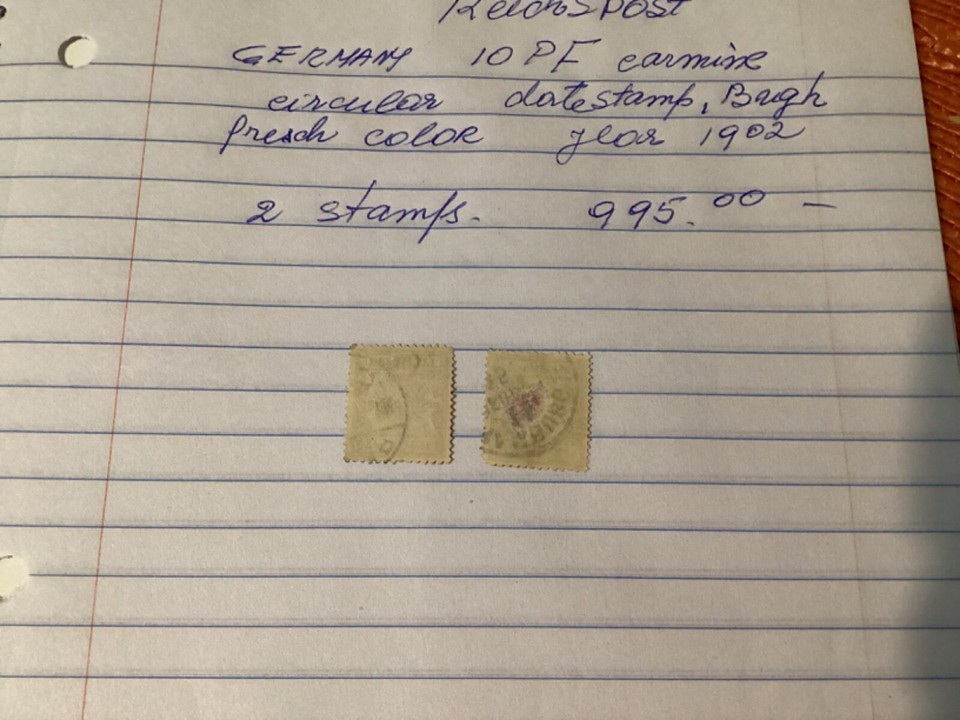 Reichspost
GERMANY 10 PF carmine
circular datestamp, Brigh
fresh color year 1902
2 stamps. 995.00 —